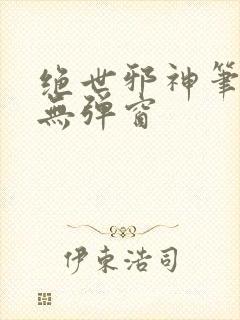 绝世邪神筆
無弹窗
伊東浩司